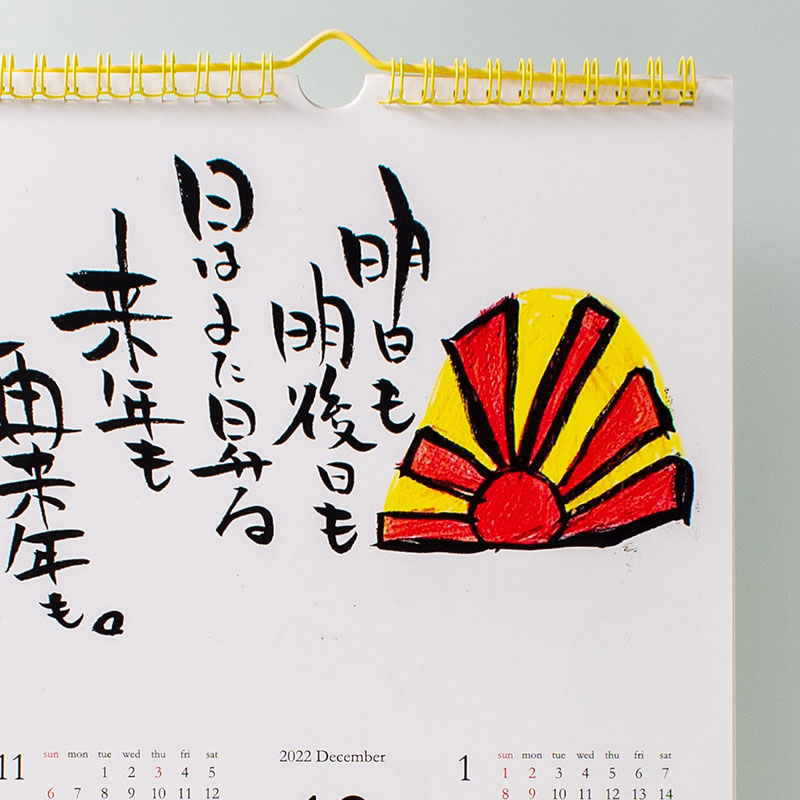 明日も
明後日も
日はまた昇る
来年も
再来年も。
11
sun mon tue wed thu fri sat
1 2 3 4 5
6 7 8 9 10 11 12
2022 December
1
sun mon tue wed thu fri sat
1 2 3 4 5 6 7
8 9 10 11 12 13 14